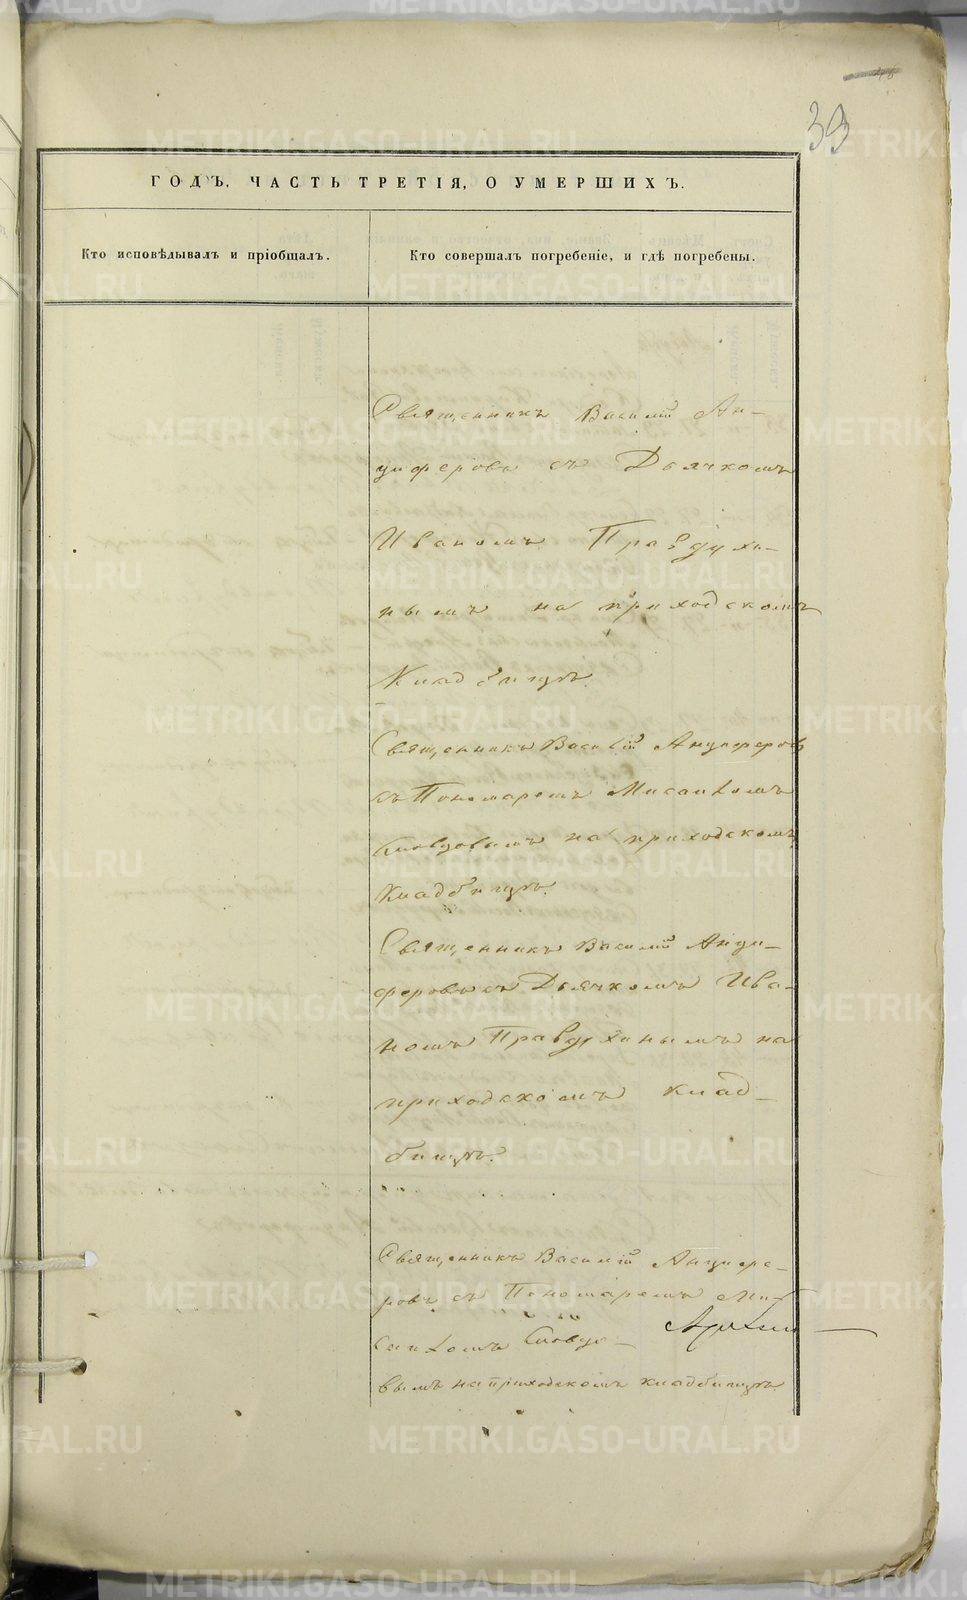 39
ГОДЪ, ЧАСТЬ ТРЕТІЯ, О УМЕРШИХЪ.
Кто исповѣдывалъ и пріобщалъ.
Кто совершалъ погребеніе, и гдѣ погребены.
Священникъ Василій Ан-
циферовъ съ Дьячкомъ
Иваномъ Правдухи-
нымъ на приходскомъ
Кладбищѣ.
Священникъ Василій Анциферовъ
съ Пономаремъ Мисаиломъ
Словцовымъ на приходскомъ
Кладбищѣ.
Священникъ Василій Анци-
феровъ съ Дьячкомъ Ива-
номъ Правдухинымъ на
приходскомъ клад-
бищѣ.
Священникъ Василій Анцифе-
ровъ съ Пономаремъ Ми-
саиломъ Словцо-
вымъ на приходскомъ кладбищѣ
METRIKI.GASO-URAL.RU